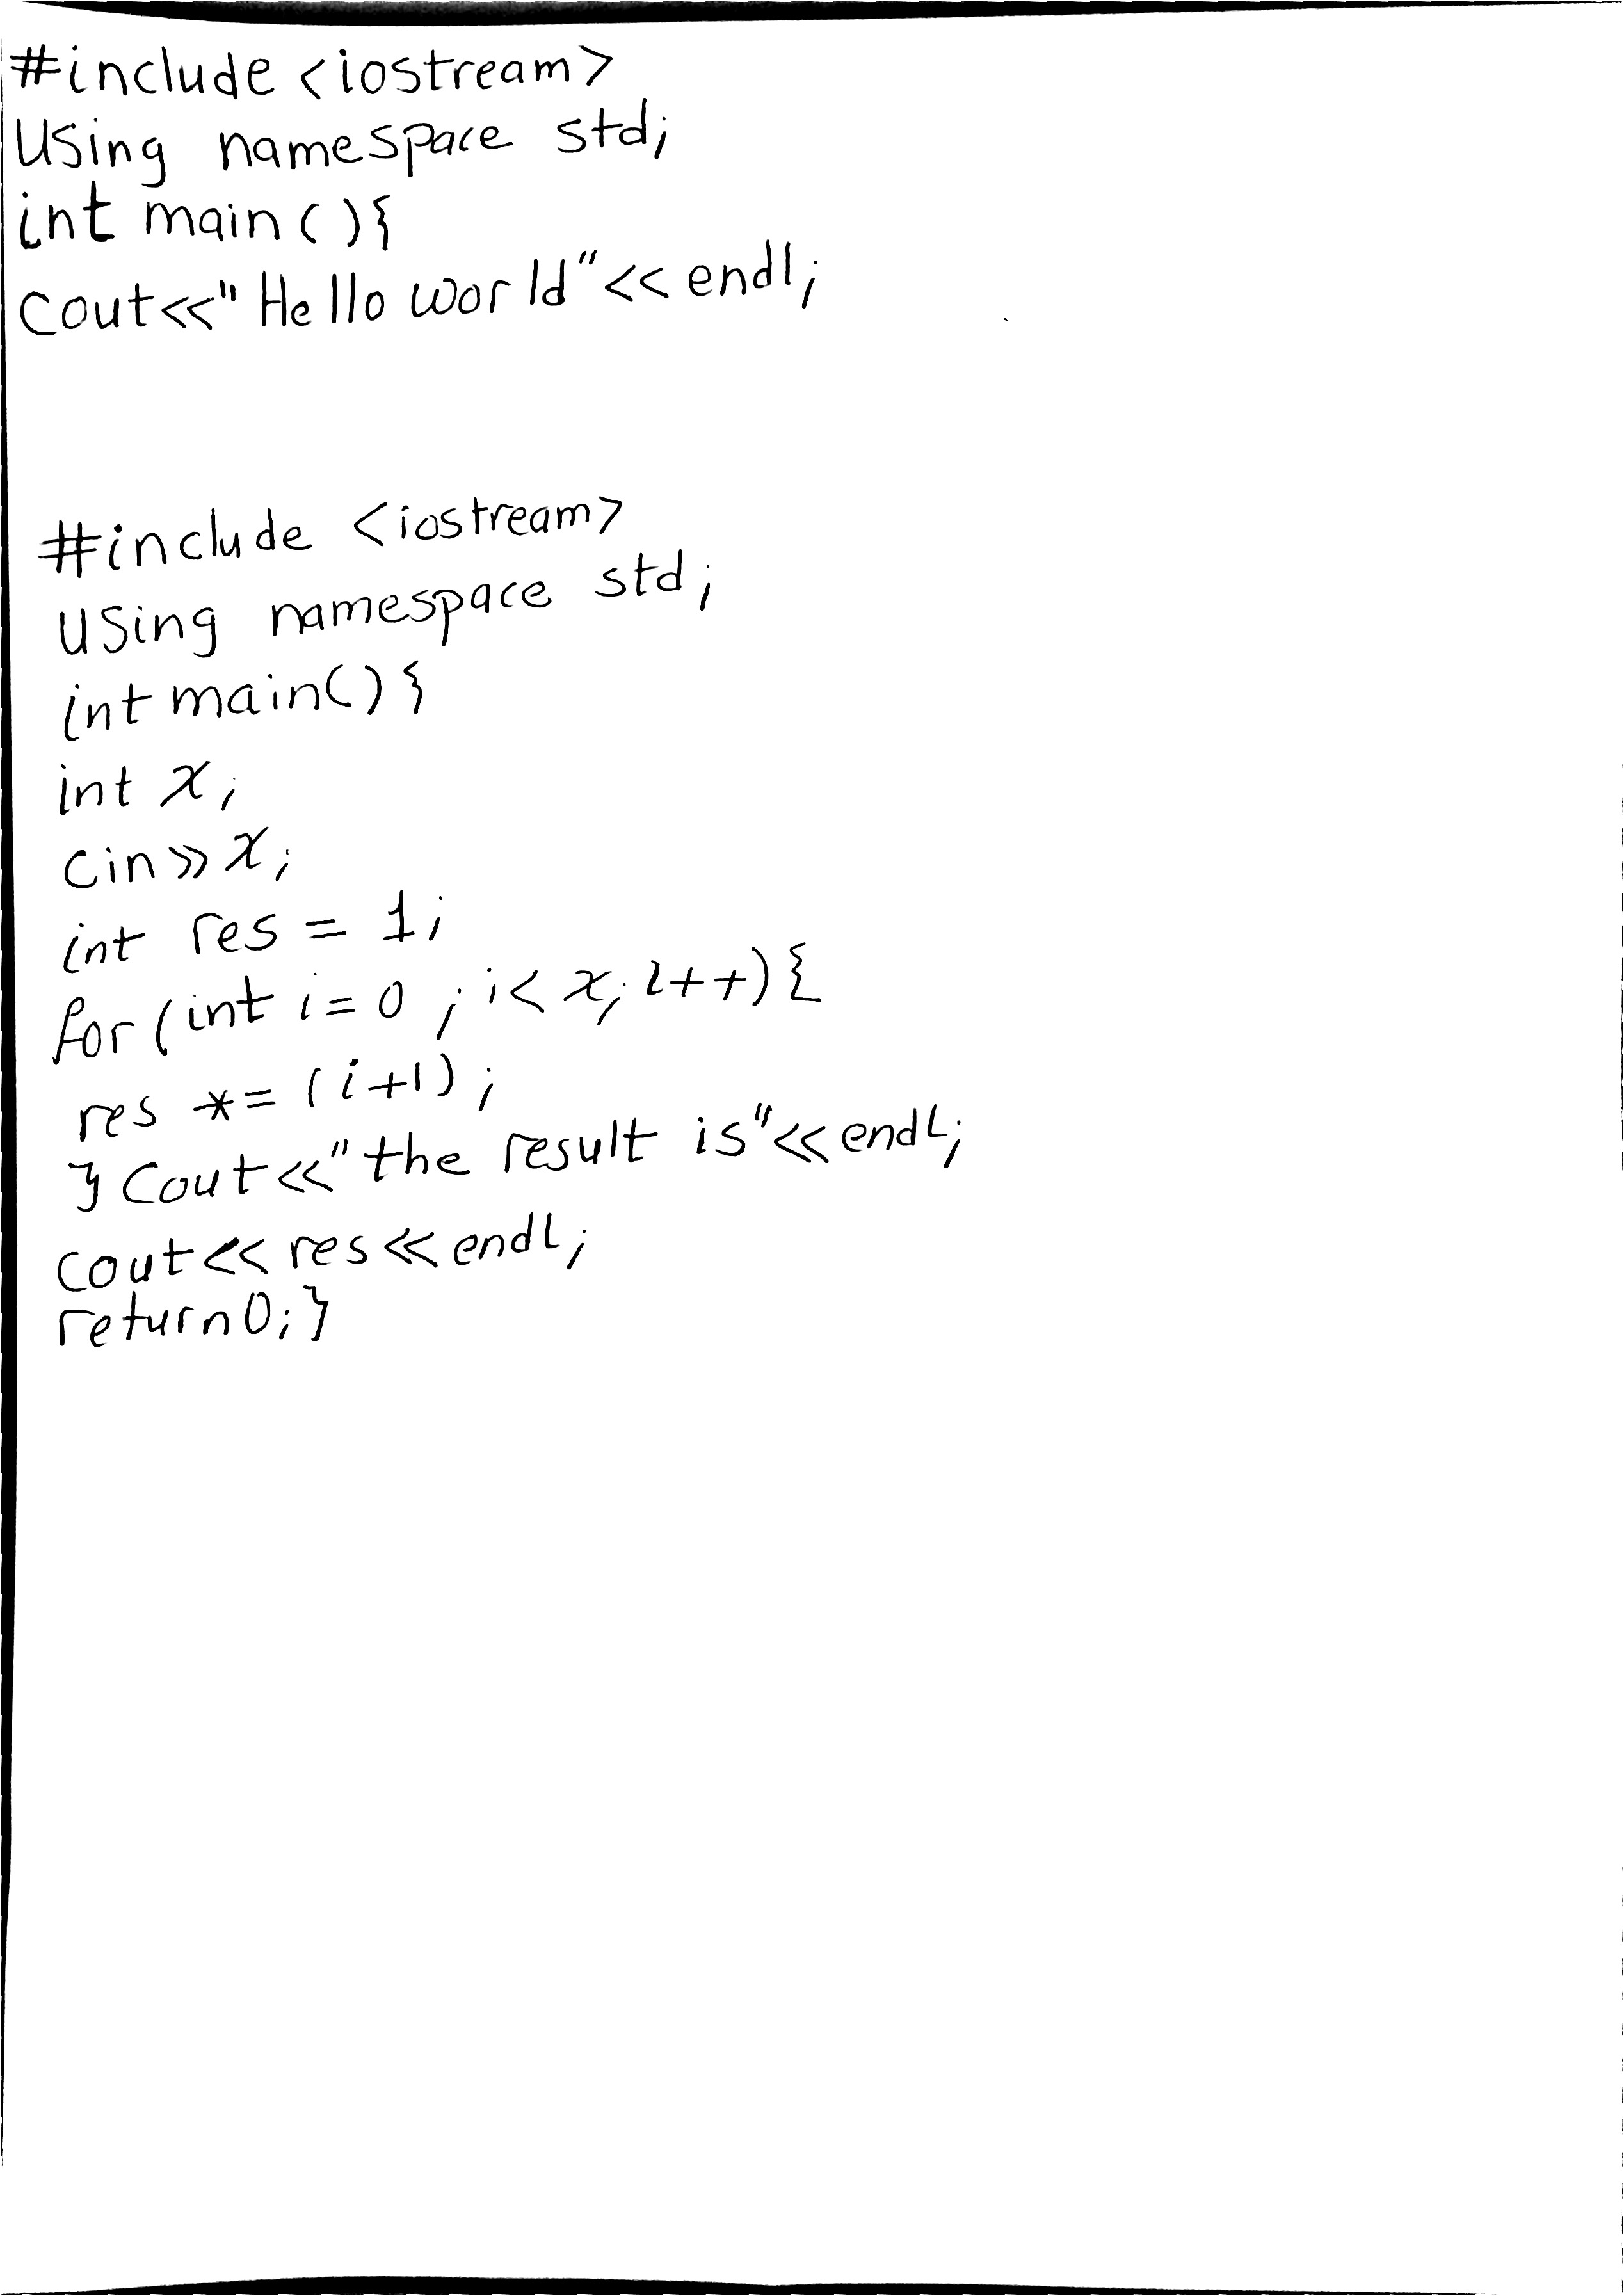 #include <iostream>
Using namespace std;
int main(){
Cout<<"Hello world"<<endl;
#include <iostream>
Using namespace std;
int main(){
int x;
Cin>>x;
int res = 1;
for(int i=0; i<x; i++){
res *= (i+1);
} Cout<<"the result is"<<endl;
cout<<res<<endl;
return0;}